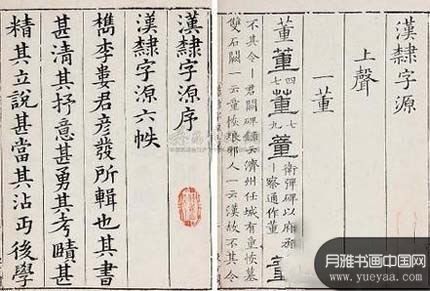 漢隸字源
上聲
一董
董董四七董七九董衛彈碑以廟都一察通作董董
不其令一君闕碑錄云濟州任城有重恢墓
雙石闕一云董恢琅邪人一云漢故不其令
漢隸字源序
漢隸字源六帙
檇李婁君彥發所輯也其書
甚清其抒意甚勇其考賾甚
精其立說甚當其沾丐後學
月雅书画中国网
www.yueyaa.com